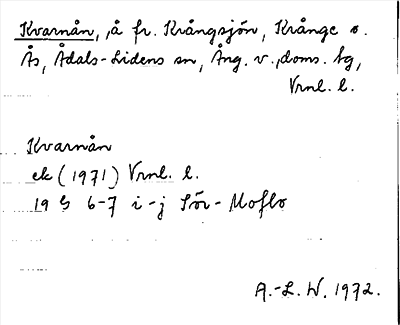 Kvarnån, å fr. Krångsjön, Krånge o.
Ås, Ådals-Lidens sn, Ång. v., doms. bg,
Vrnl. l.
Kvarnån
ek (1971) Vrnl. l.
19 G 6-7 i-j Sör-Moflo
A.-L. W. 1972.